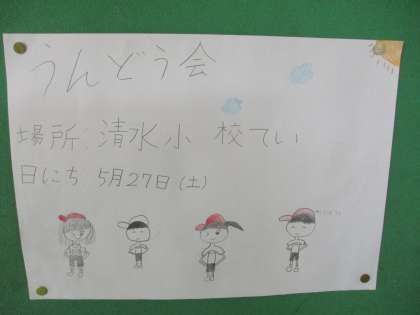 うんどう会
場所:清水小 校てい
日にち 5月27日(土)